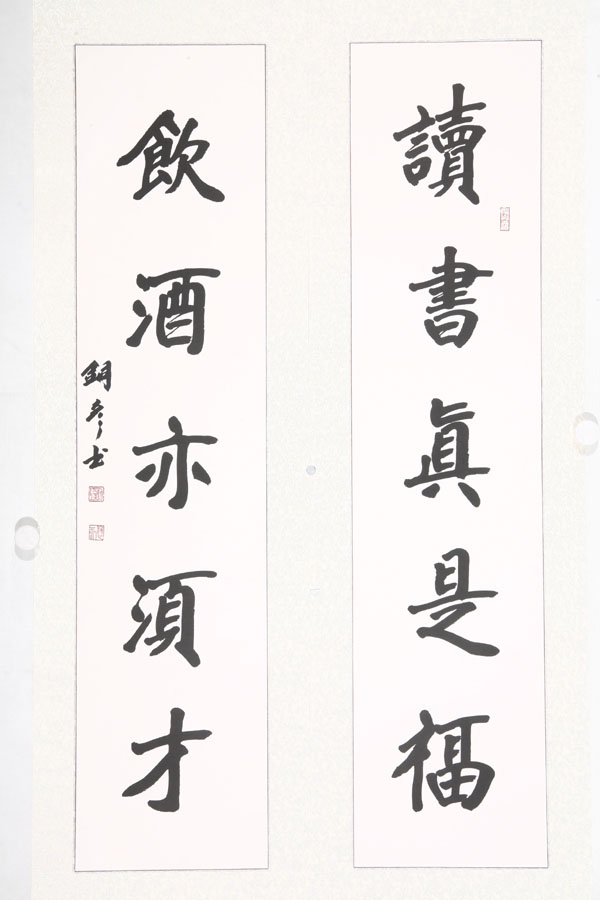 讀書眞是福
飲酒亦須才
銅彥书